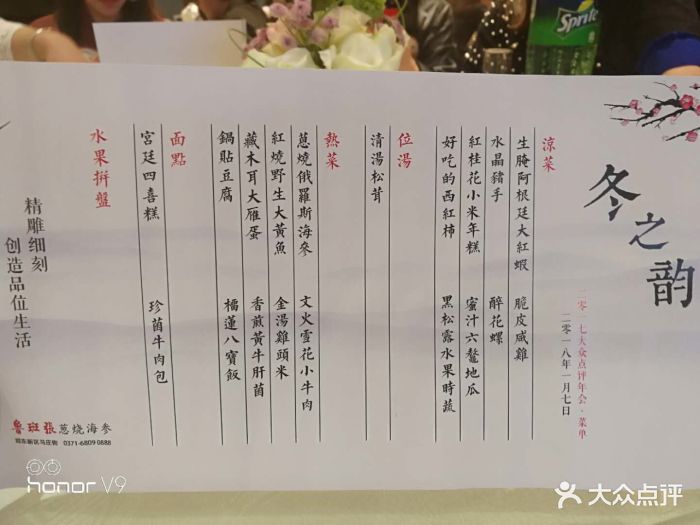 Sprite
冬之韵
二零一七大众点评年会·菜单
二零一八年一月七日
涼菜
生腌阿根廷大紅蝦 脆皮咸雞
水晶豬手 醉花螺
紅桂花小米年糕 蜜汁六鳌地瓜
好吃的西紅柿 黑松露水果時蔬
位湯
清湯松茸
熱菜
蔥燒俄羅斯海參 文火雪花小牛肉
紅燒野生大黃魚 金湯雞頭米
藏木耳大雁蛋 香煎黃牛肝菌
鍋貼豆腐 橘蓮八寶飯
面點
宮廷四喜糕 珍菌牛肉包
水果拼盤
精雕细刻
创造品位生活
魯班張蔥烧海参
郑东新区马庄街 0371-6809 0888
honor V9
大众点评